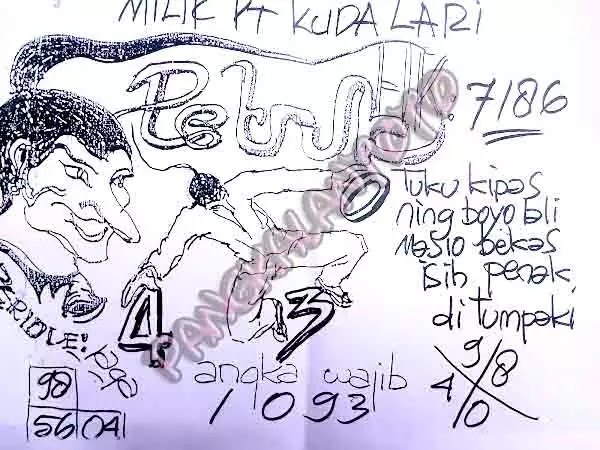 MILIK PT KUDA LARI
Petruk
7/86
Tuku kipas
ning boyo bli
Masio bekas
isih penak
di Tumpaki
4 3
angka wajib
1 0 9 3
9
4 8
0
98
56 04